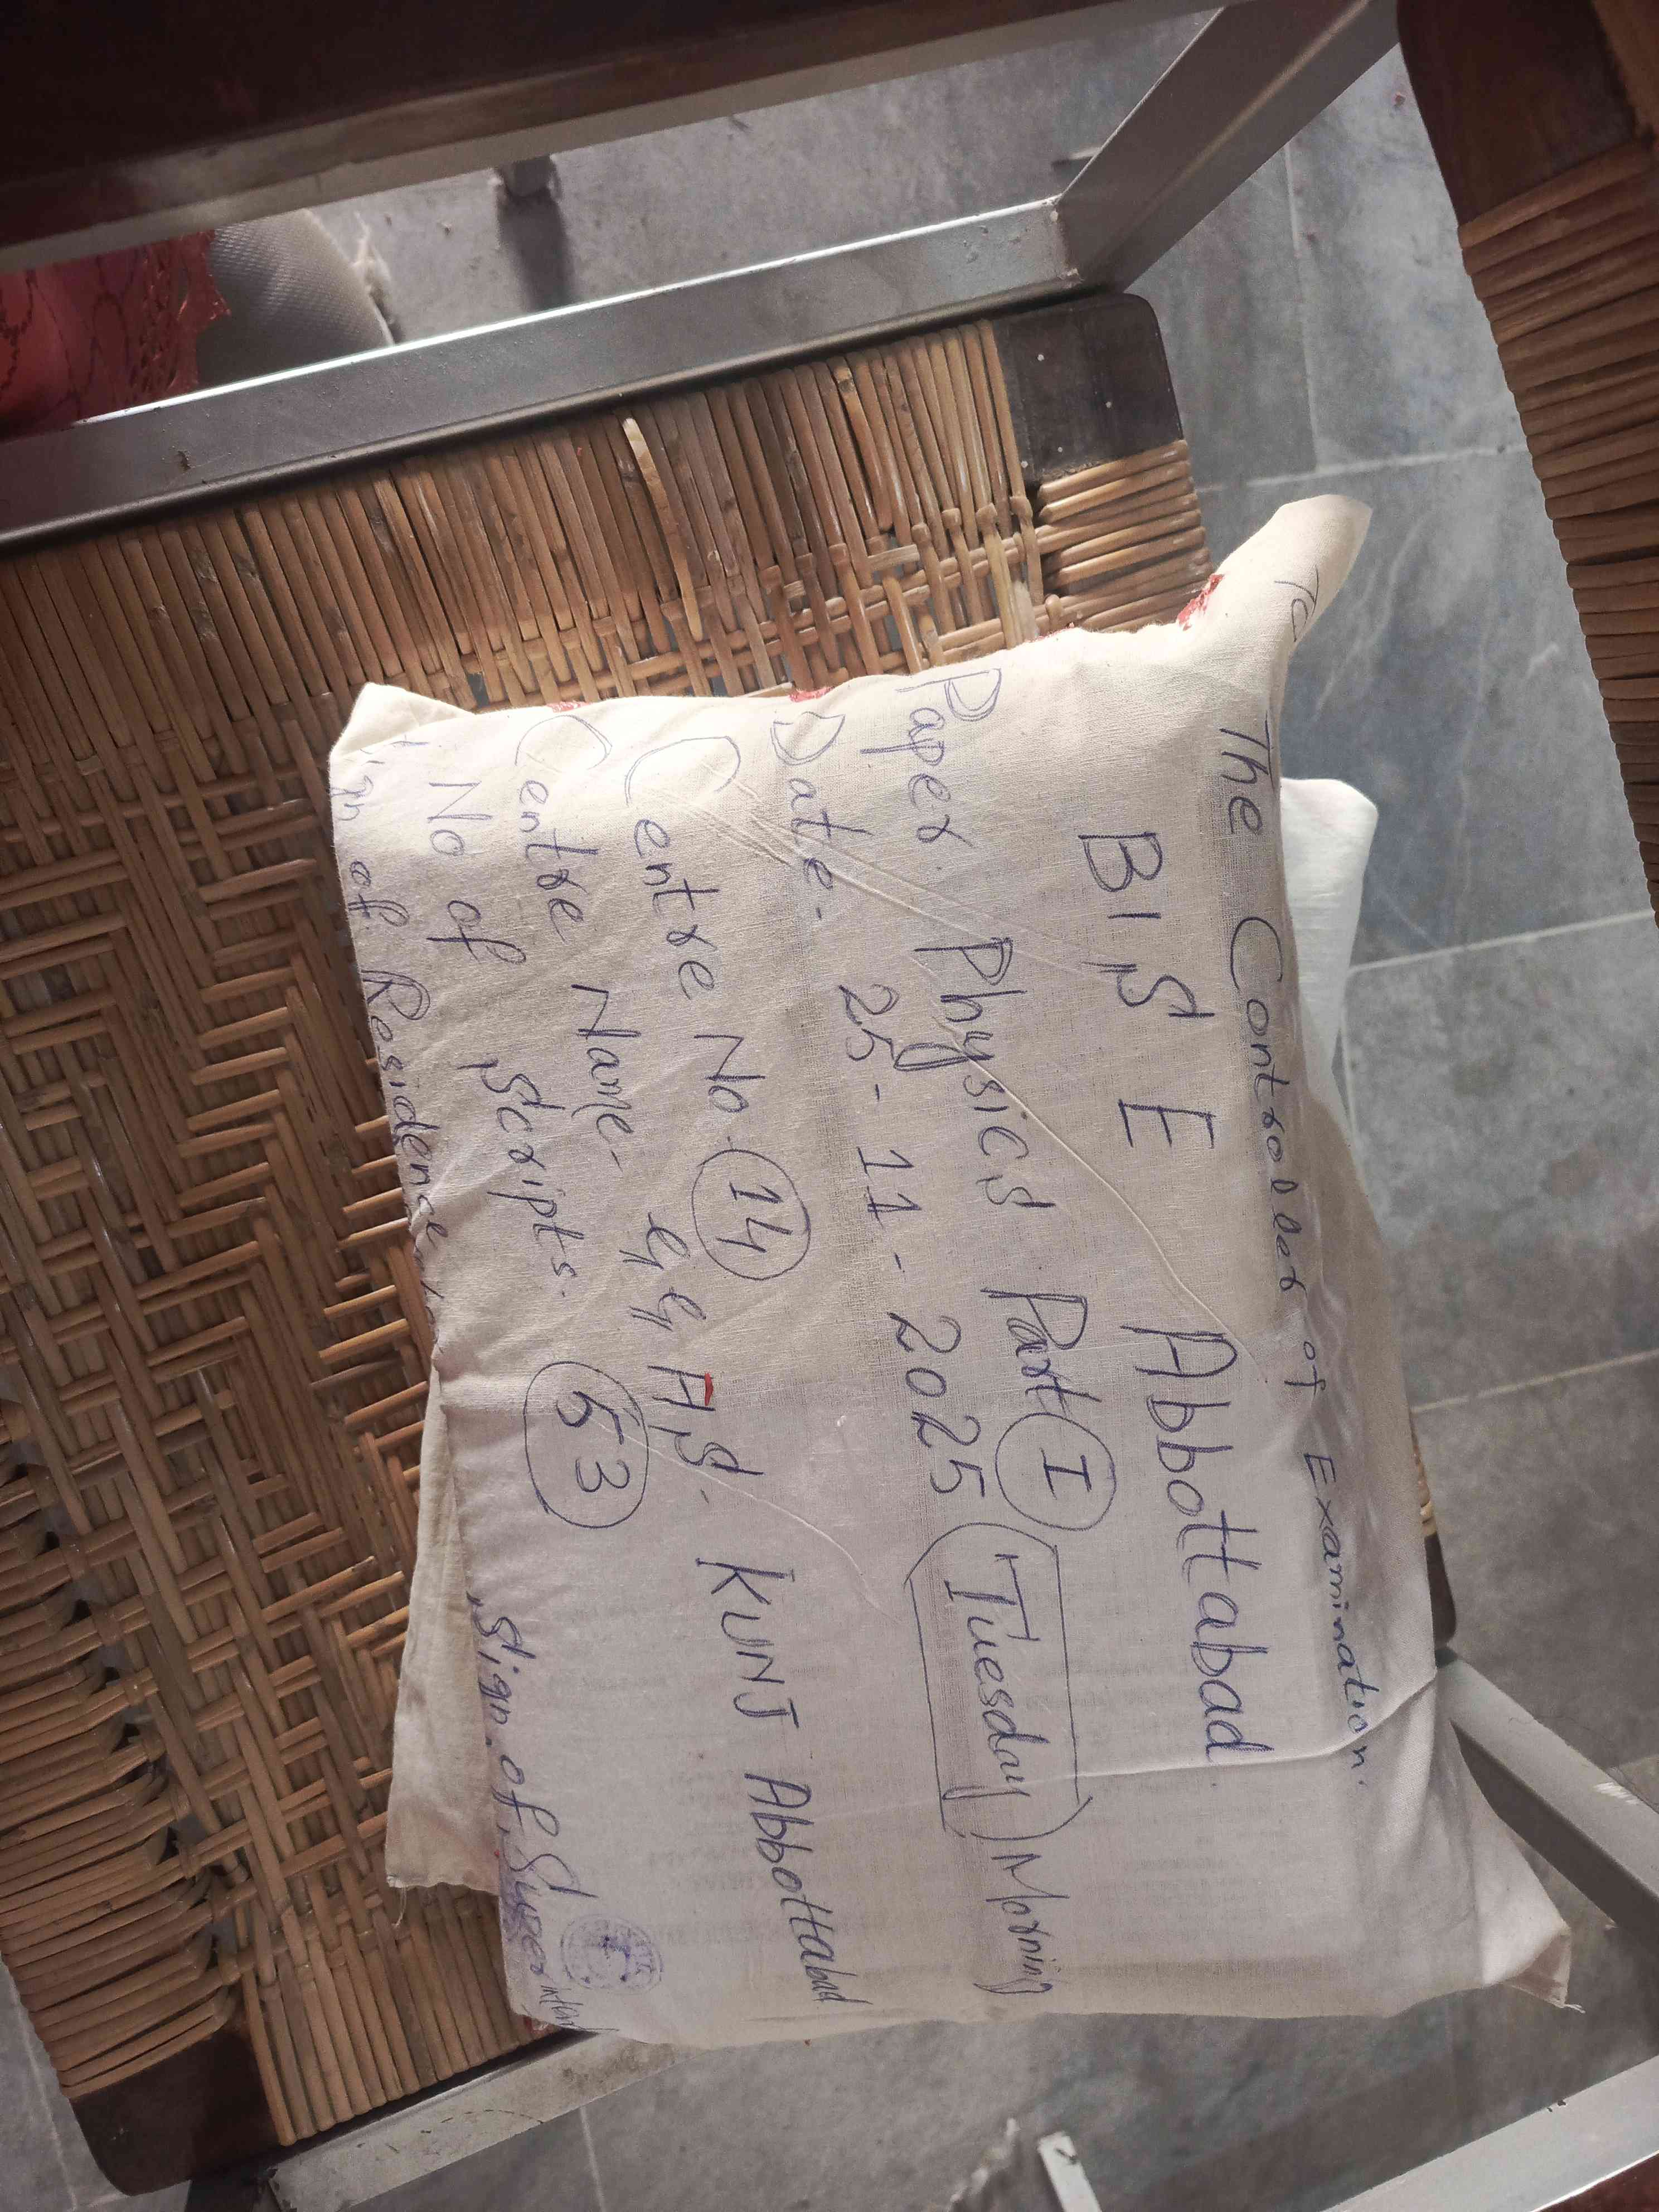 To
The Controller of Examination.
BISE Abbottabad
Paper. Physics Part I
Date. 25-11-2025 Tuesday Morning
Centre No 14
Centre Name- GGHS. KUNJ Abbottabad
No of Scripts. 53
Sign of Residence Sign. of Superintent